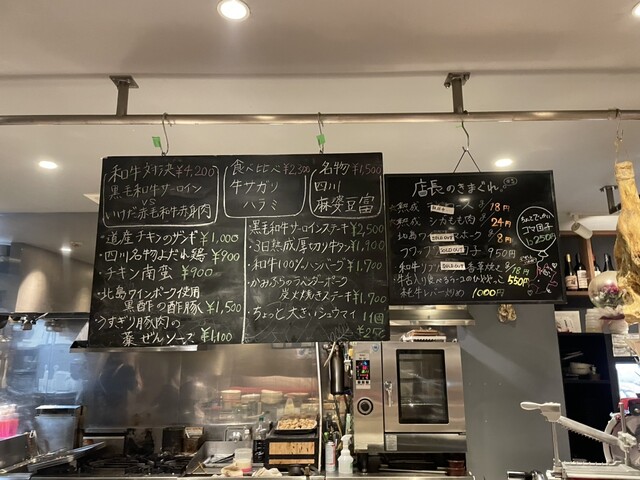 和牛対決¥4,200
黒毛和牛サーロイン
VS
いけだ赤毛和牛赤身肉
食べ比べ¥2,300
牛サガリ
ハラミ
名物¥1,500
四川
麻婆豆富
・道産チキンのザンギ¥1,000
・四川名物よだれ鶏¥900
・チキン南蛮¥900
・北島ワインポーク使用
黒酢の酢豚¥1,500
・うすぎり豚肉の
葱ぜんソース¥1,100
・黒毛和牛サーロインステーキ¥2,500
・3日熟成厚切り牛タン¥1,900
・和牛100%ハンバーグ¥1,700
・かみふらのラベンダーポーク
炭火焼きステーキ¥1,700
・ちょっと大きいシュウマイ 1個
¥250
店長のきまぐれ
熟成
SOLD OUT
ス 18円
熟成 シカもも肉 24円
北島ワ
SOLD OUT
ーク 8円
フワッ
SOLD OUT
子 950円
和牛リブ
SOLD OUT
香草焼き 18円
550円
和牛レバー炒め 1000円
ゴマ団子
250円